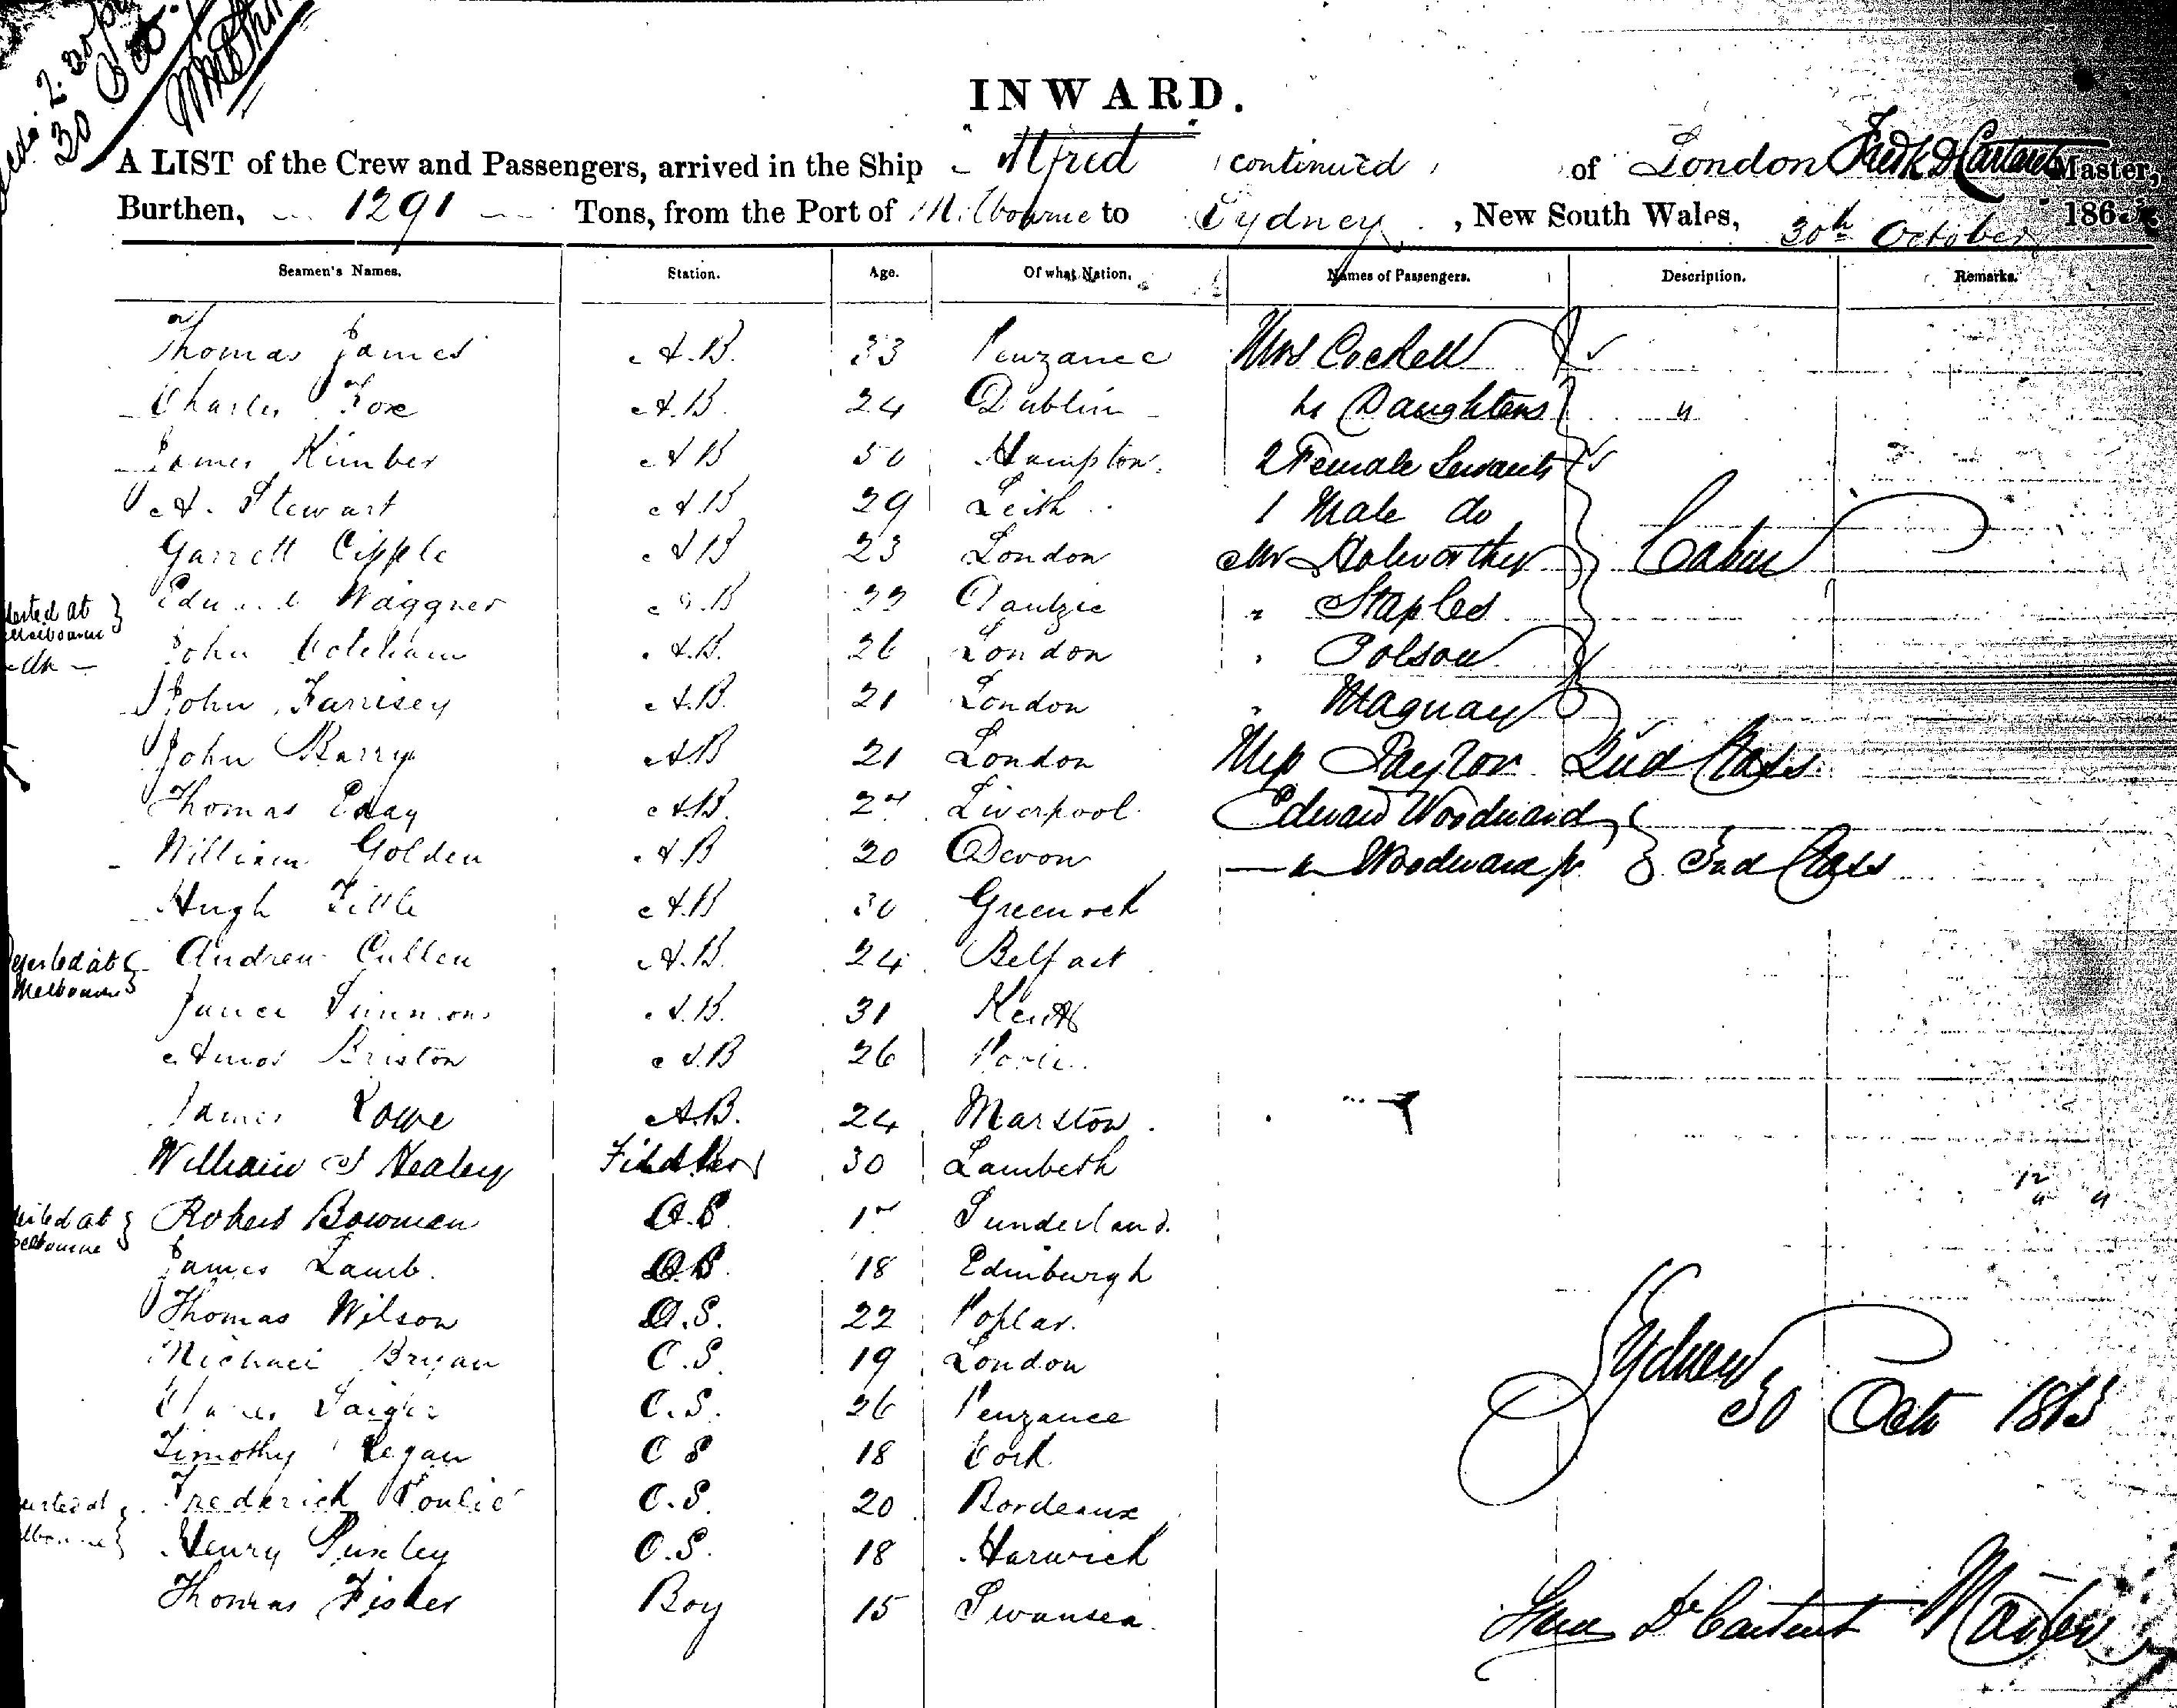 30 Oct.
INWARD.
A LIST of the Crew and Passengers, arrived in the Ship Alfred continued of London Fredk D Carteret Master,
Burthen, 1291 Tons, from the Port of Melbourne to Sydney, New South Wales, 30th October 186
Seamen's Names. Station. Age. Of what Nation. Names of Passengers. Description. Remarks.
Thomas James A.B. 33 Penzance Mrs Cockell
Charles Fox A.B. 24 Dublin Daughters "
James Kimber AB 50 Hampton. 2 Female Servants
A. Stewart A.B 29 Leith 1 Male do
Garrett Cipple AB 23 London Mr Holworthy Cabin
Waggner A.B Dantzic " Staples
John A.B. 26 London Polson
John Farrisey A.B. 21 London " Maguay
John Barry AB 21 London Miss Taylor 2nd Class
Thomas Eday A.B. Liverpool Edward Woodward
William Golden A.B 20 Devon Woodward jr 3rd Class
Hugh Little A.B 30 Greenock
Deserted at Melbourne Andrew Cullen A.B. 24 Belfast
James Simmons A.B. 31 Kent
Amos Briston A.B 26
James Rowe A.B. 24 Marston
William J Healey 30 Lambeth
Robert Bowman O.S. Sunderland.
James Lamb. O.S. 18 Edinburgh
Thomas Wilson O.S. 22 Poplar.
Michael Bryan O.S. 19 London
O.S. 26 Penzance
Timothy Regan O S 18 Cork
Frederick O.S. 20 Bordeaux
Henry Puxley O.S. 18 Harwich
Thomas Fisher Boy 15 Swansea.
Sydney
30 Oct 1863
De Carteret Master